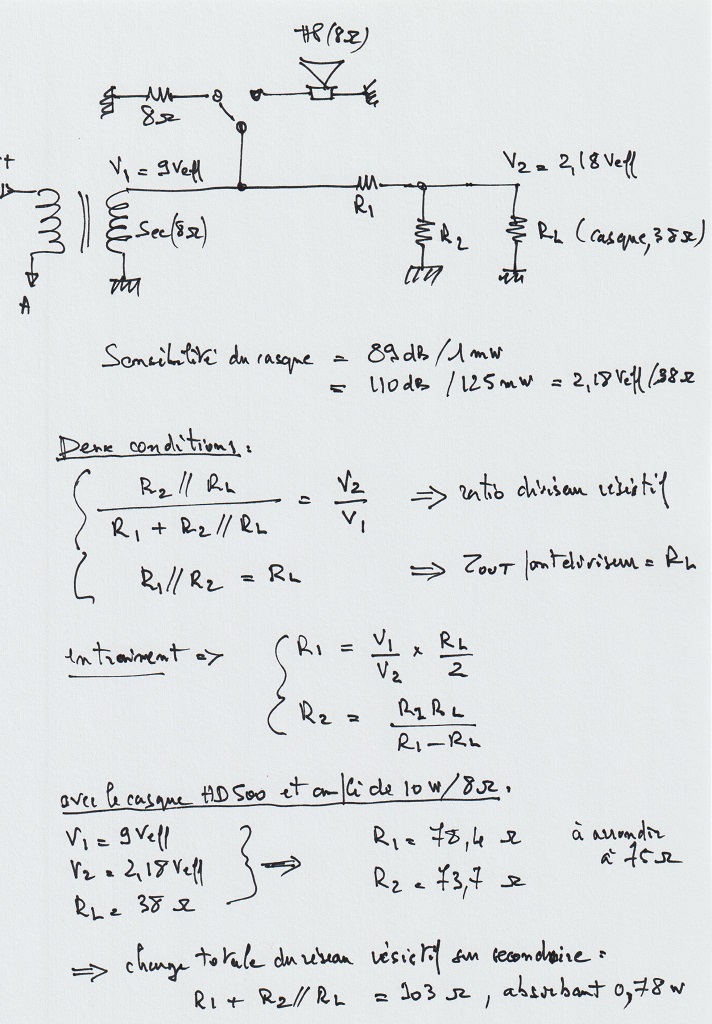 HP (8Ω)
8Ω
V1 = 9Veff
V2 = 2,18Veff
R1
Sec(8Ω)
R2
RL (casque, 38Ω)
A
Sensibilité du casque = 89 dB / 1mW
= 110 dB / 125mW = 2,18Veff/38Ω
Deux conditions :
R2 // RL / R1 + R2 // RL = V2 / V1 => ratio diviseur résistif
R1 // R2 = RL => ZOUT pont diviseur = RL
entrainent => R1 = V1 / V2 × RL / 2
R2 = R1 RL / R1 – RL
avec le casque HD500 et ampli de 10W/8Ω :
V1 = 9Veff
V2 = 2,18Veff
RL = 38Ω
=> R1 = 78,4 Ω
R2 = 73,7 Ω
à arrondir
à 75Ω
=> charge totale du réseau résistif sur secondaire :
R1 + R2 // RL = 103 Ω, absorbant 0,78W